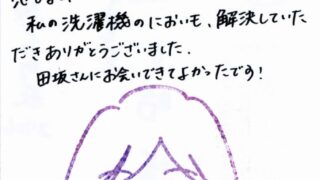 私の洗濯機のにおいも、解決していた
だきありがとうございました.
田坂さんにお会いできてよかったです!